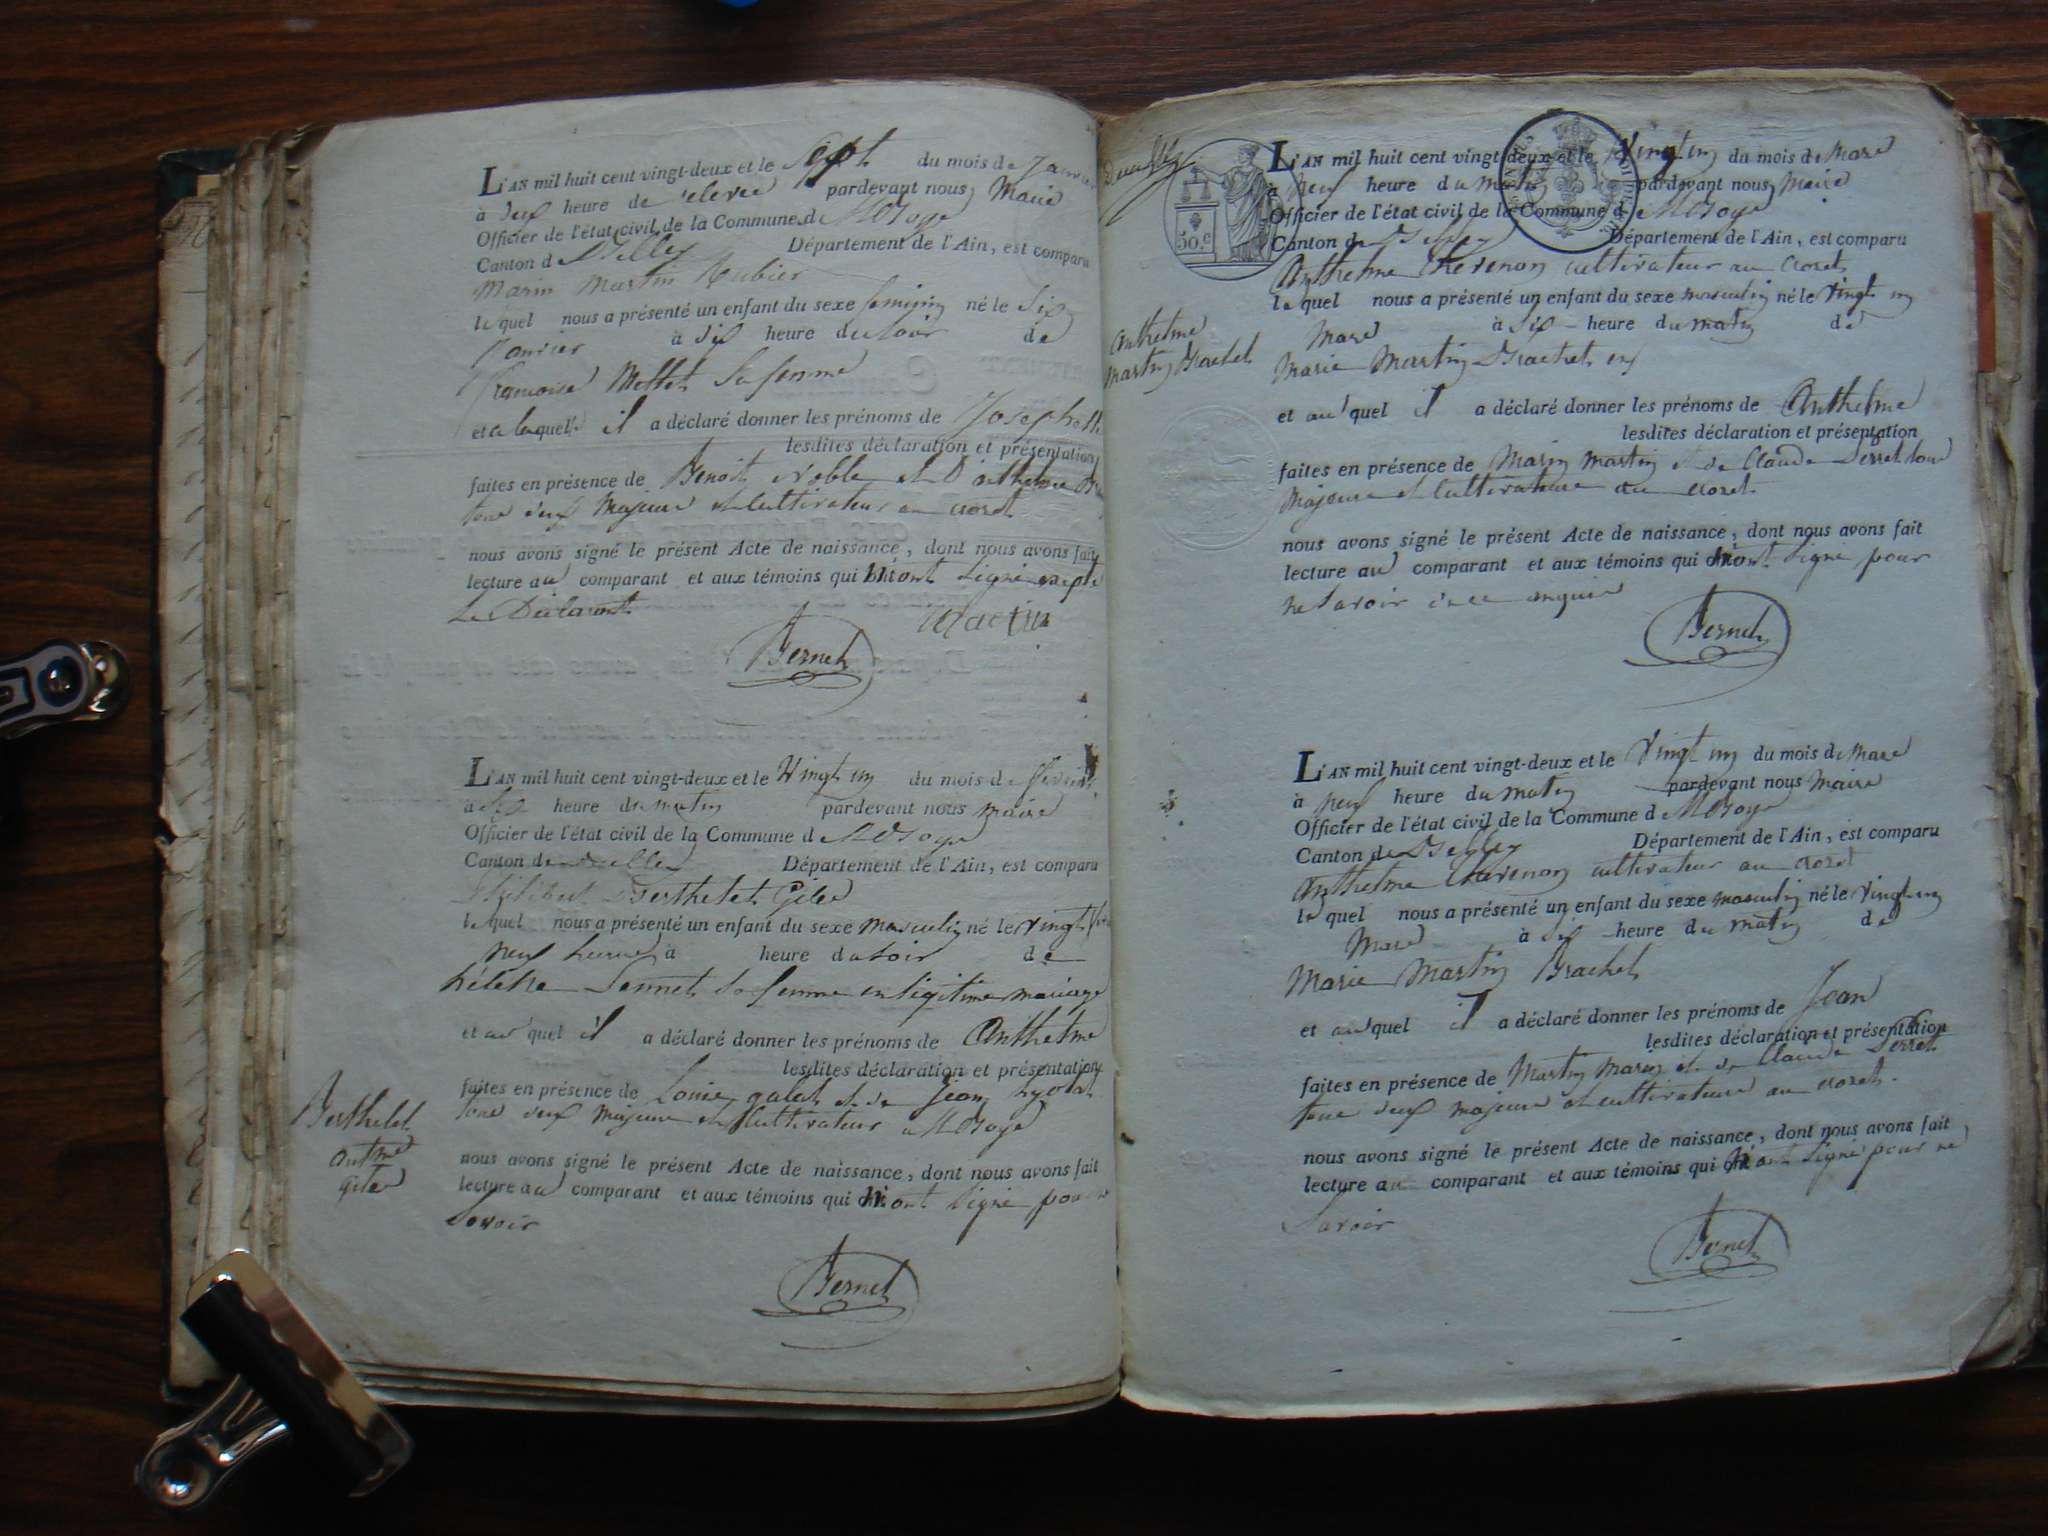 L'AN mil huit cent vingt-deux et le sept du mois de Janvier
à deux heure de relevée pardevant nous Maire
Officier de l'état civil de la Commune de
Canton d Département de l'Ain, est comparu
Marin Martin Rubier
le quel nous a présenté un enfant du sexe feminin né le Six
Janvier à Six heure du soir de
françoise Mollet Sa femme
et a laquelle il a déclaré donner les prénoms de Josephe
lesdites déclaration et présentation
faites en présence de Benoit Noble et D'anthelme
tous deux Majeurs et Cultivateur au
nous avons signé le présent Acte de naissance, dont nous avons fait
lecture au comparant et aux témoins qui n'ont Signé excepté
Le Déclarant
Martin
Bernet
L'AN mil huit cent vingt-deux et le Vingt un du mois de fevrier
à Six heure du matin pardevant nous maire
Officier de l'état civil de la Commune d
Canton de Département de l'Ain, est comparu
Philibert Berthelet Gile
le quel nous a présenté un enfant du sexe masculin né le vingt
neuf heures à heure du soir de
hélène Sa femme en légitime mariage
et au quel il a déclaré donner les prénoms de Anthelme
lesdites déclaration et présentation
faites en présence de Louis galet et de Jean
tous deux majeurs et Cultivateur a
Berthelet
anthme
Gile
nous avons signé le présent Acte de naissance, dont nous avons fait
lecture au comparant et aux témoins qui n'ont Signé pour ne
Savoir
Bernet
50.c
L'AN mil huit cent vingt-deux et le Vingt un du mois de Mars
à Neuf heure du matin pardevant nous Maire
Officier de l'état civil de la Commune d
Canton de Belley Département de l'Ain, est comparu
Anthelme Thevenon cultivateur au
le quel nous a présenté un enfant du sexe masculin né le vingt un
Mars à six heure du matin de
Anthelme
Martin Brachet
Marie Martin Brachet
et au quel il a déclaré donner les prénoms de Anthelme
lesdites déclaration et présentation
faites en présence de Marin Martin et de Claude Perret tous
Majeurs et Cultivateurs au
nous avons signé le présent Acte de naissance, dont nous avons fait
lecture au comparant et aux témoins qui n'ont Signé pour
ne Savoir de ce enquis
Bernet
L'AN mil huit cent vingt-deux et le Vingt un du mois de Mars
à neuf heure du matin pardevant nous Maire
Officier de l'état civil de la Commune d
Canton de Belley Département de l'Ain, est comparu
Anthelme Thevenon cultivateur au
le quel nous a présenté un enfant du sexe masculin né le vingt un
Mars à Six heure du matin de
Marie Martin Brachet
et au quel il a déclaré donner les prénoms de Jean
lesdites déclaration et présentation
faites en présence de Martin Marin et de Claude Perret
tous deux majeurs et cultivateurs au
nous avons signé le présent Acte de naissance, dont nous avons fait
lecture au comparant et aux témoins qui n'ont Signé pour ne
Savoir
Bernet